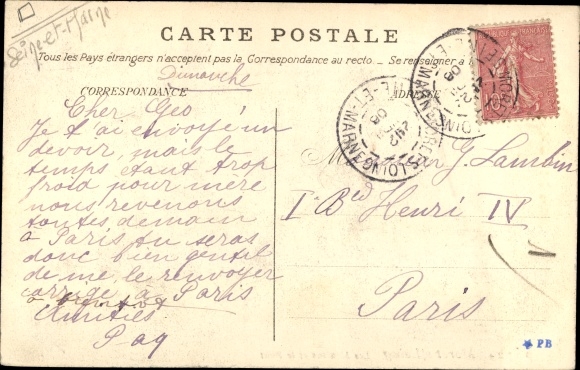 Seine-et-Marne
CARTE POSTALE
Tous les Pays étrangers n'acceptent pas la Correspondance au recto... Se renseigner à
Dimanche
CORRESPONDANCE
Cher Geo
Je t'ai envoyé un
devoir, mais le
temps étant trop
froid pour mère
nous revenons
toutes demain
à Paris tu seras
donc bien gentil
de me le renvoyer
corrigé à Paris
Amitiés
Pag
G. Lambin
1 Bd Henri IV
Paris
PB